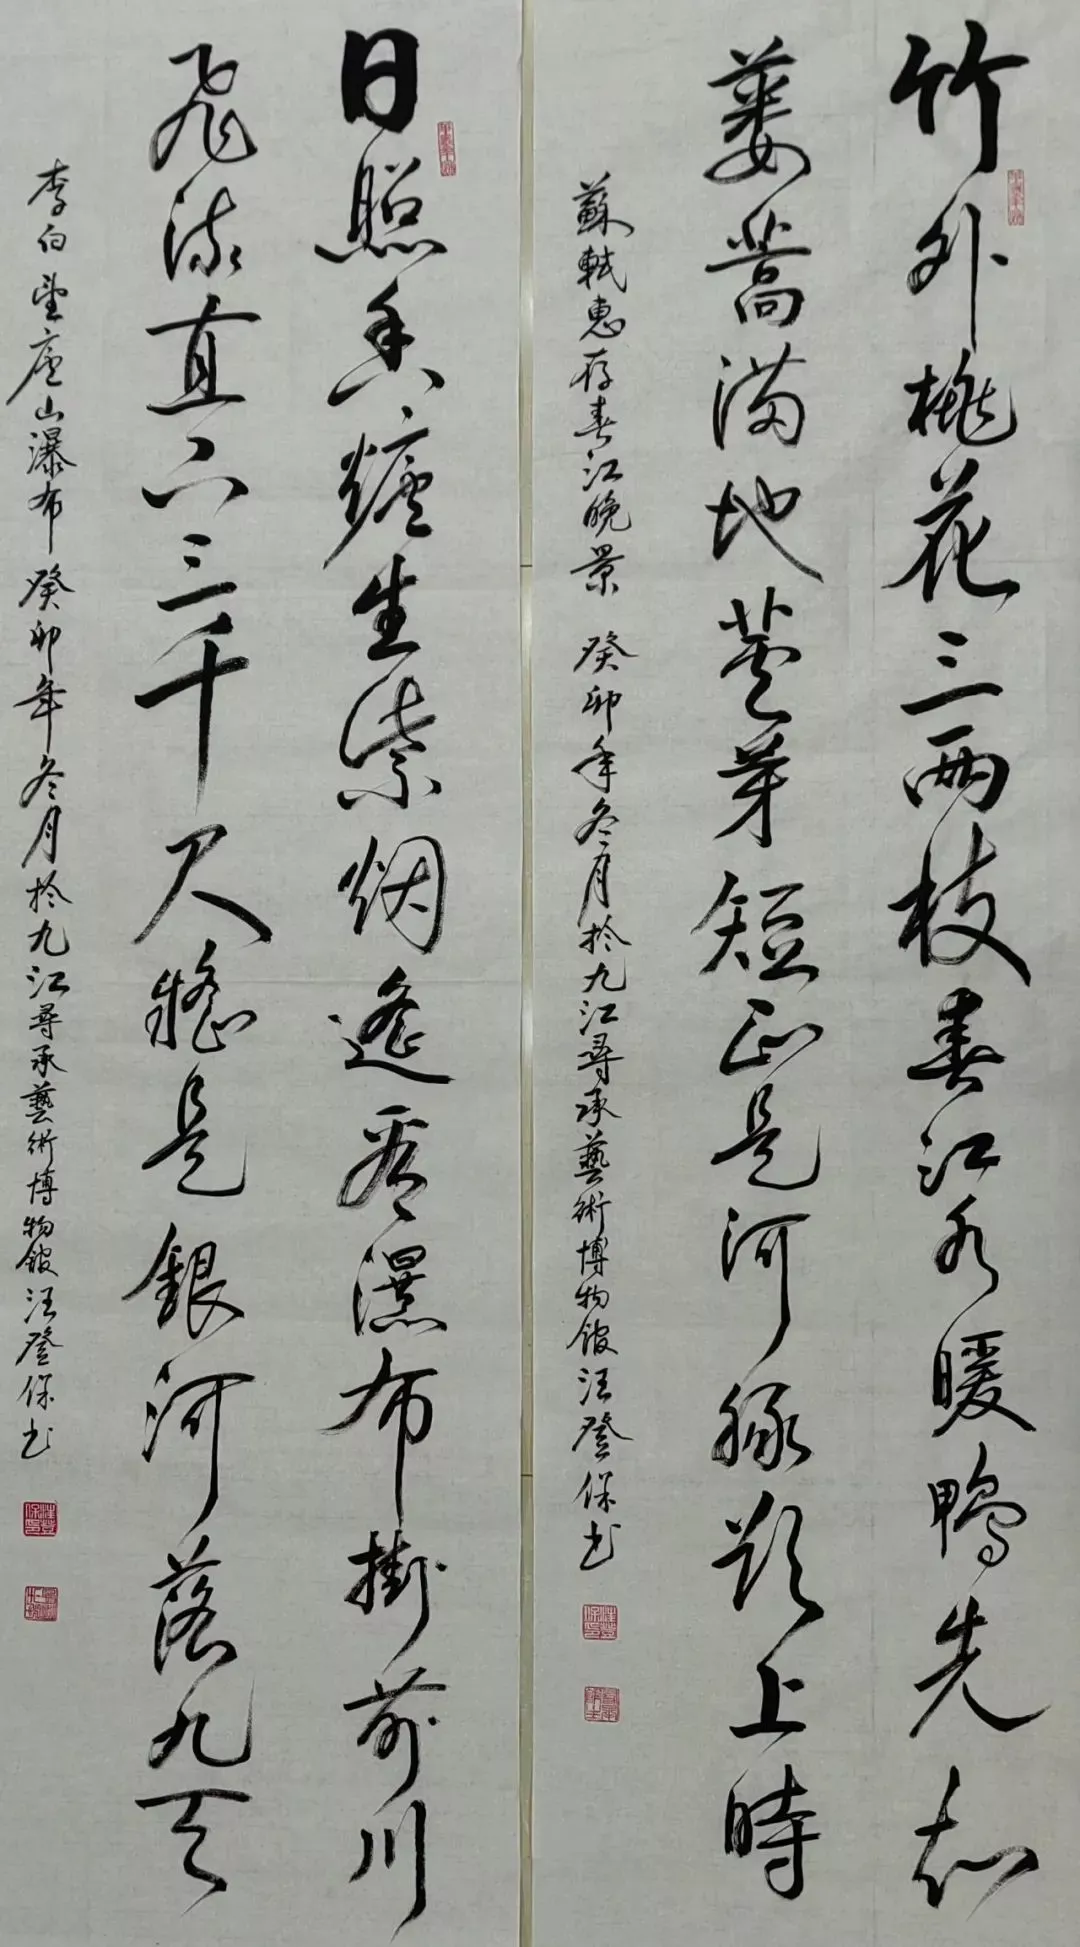 竹外桃花三兩枝春江水暖鴨先知
蔞蒿滿地蘆芽短正是河豚欲上時
蘇軾惠存春江晚景 癸卯年冬月於九江尋承藝術博物館汪登保書
汪登保印
日照香爐生紫烟遙看瀑布掛前川
飛流直下三千尺疑是銀河落九天
李白望廬山瀑布 癸卯年冬月於九江尋承藝術博物館汪登保書
汪登保印